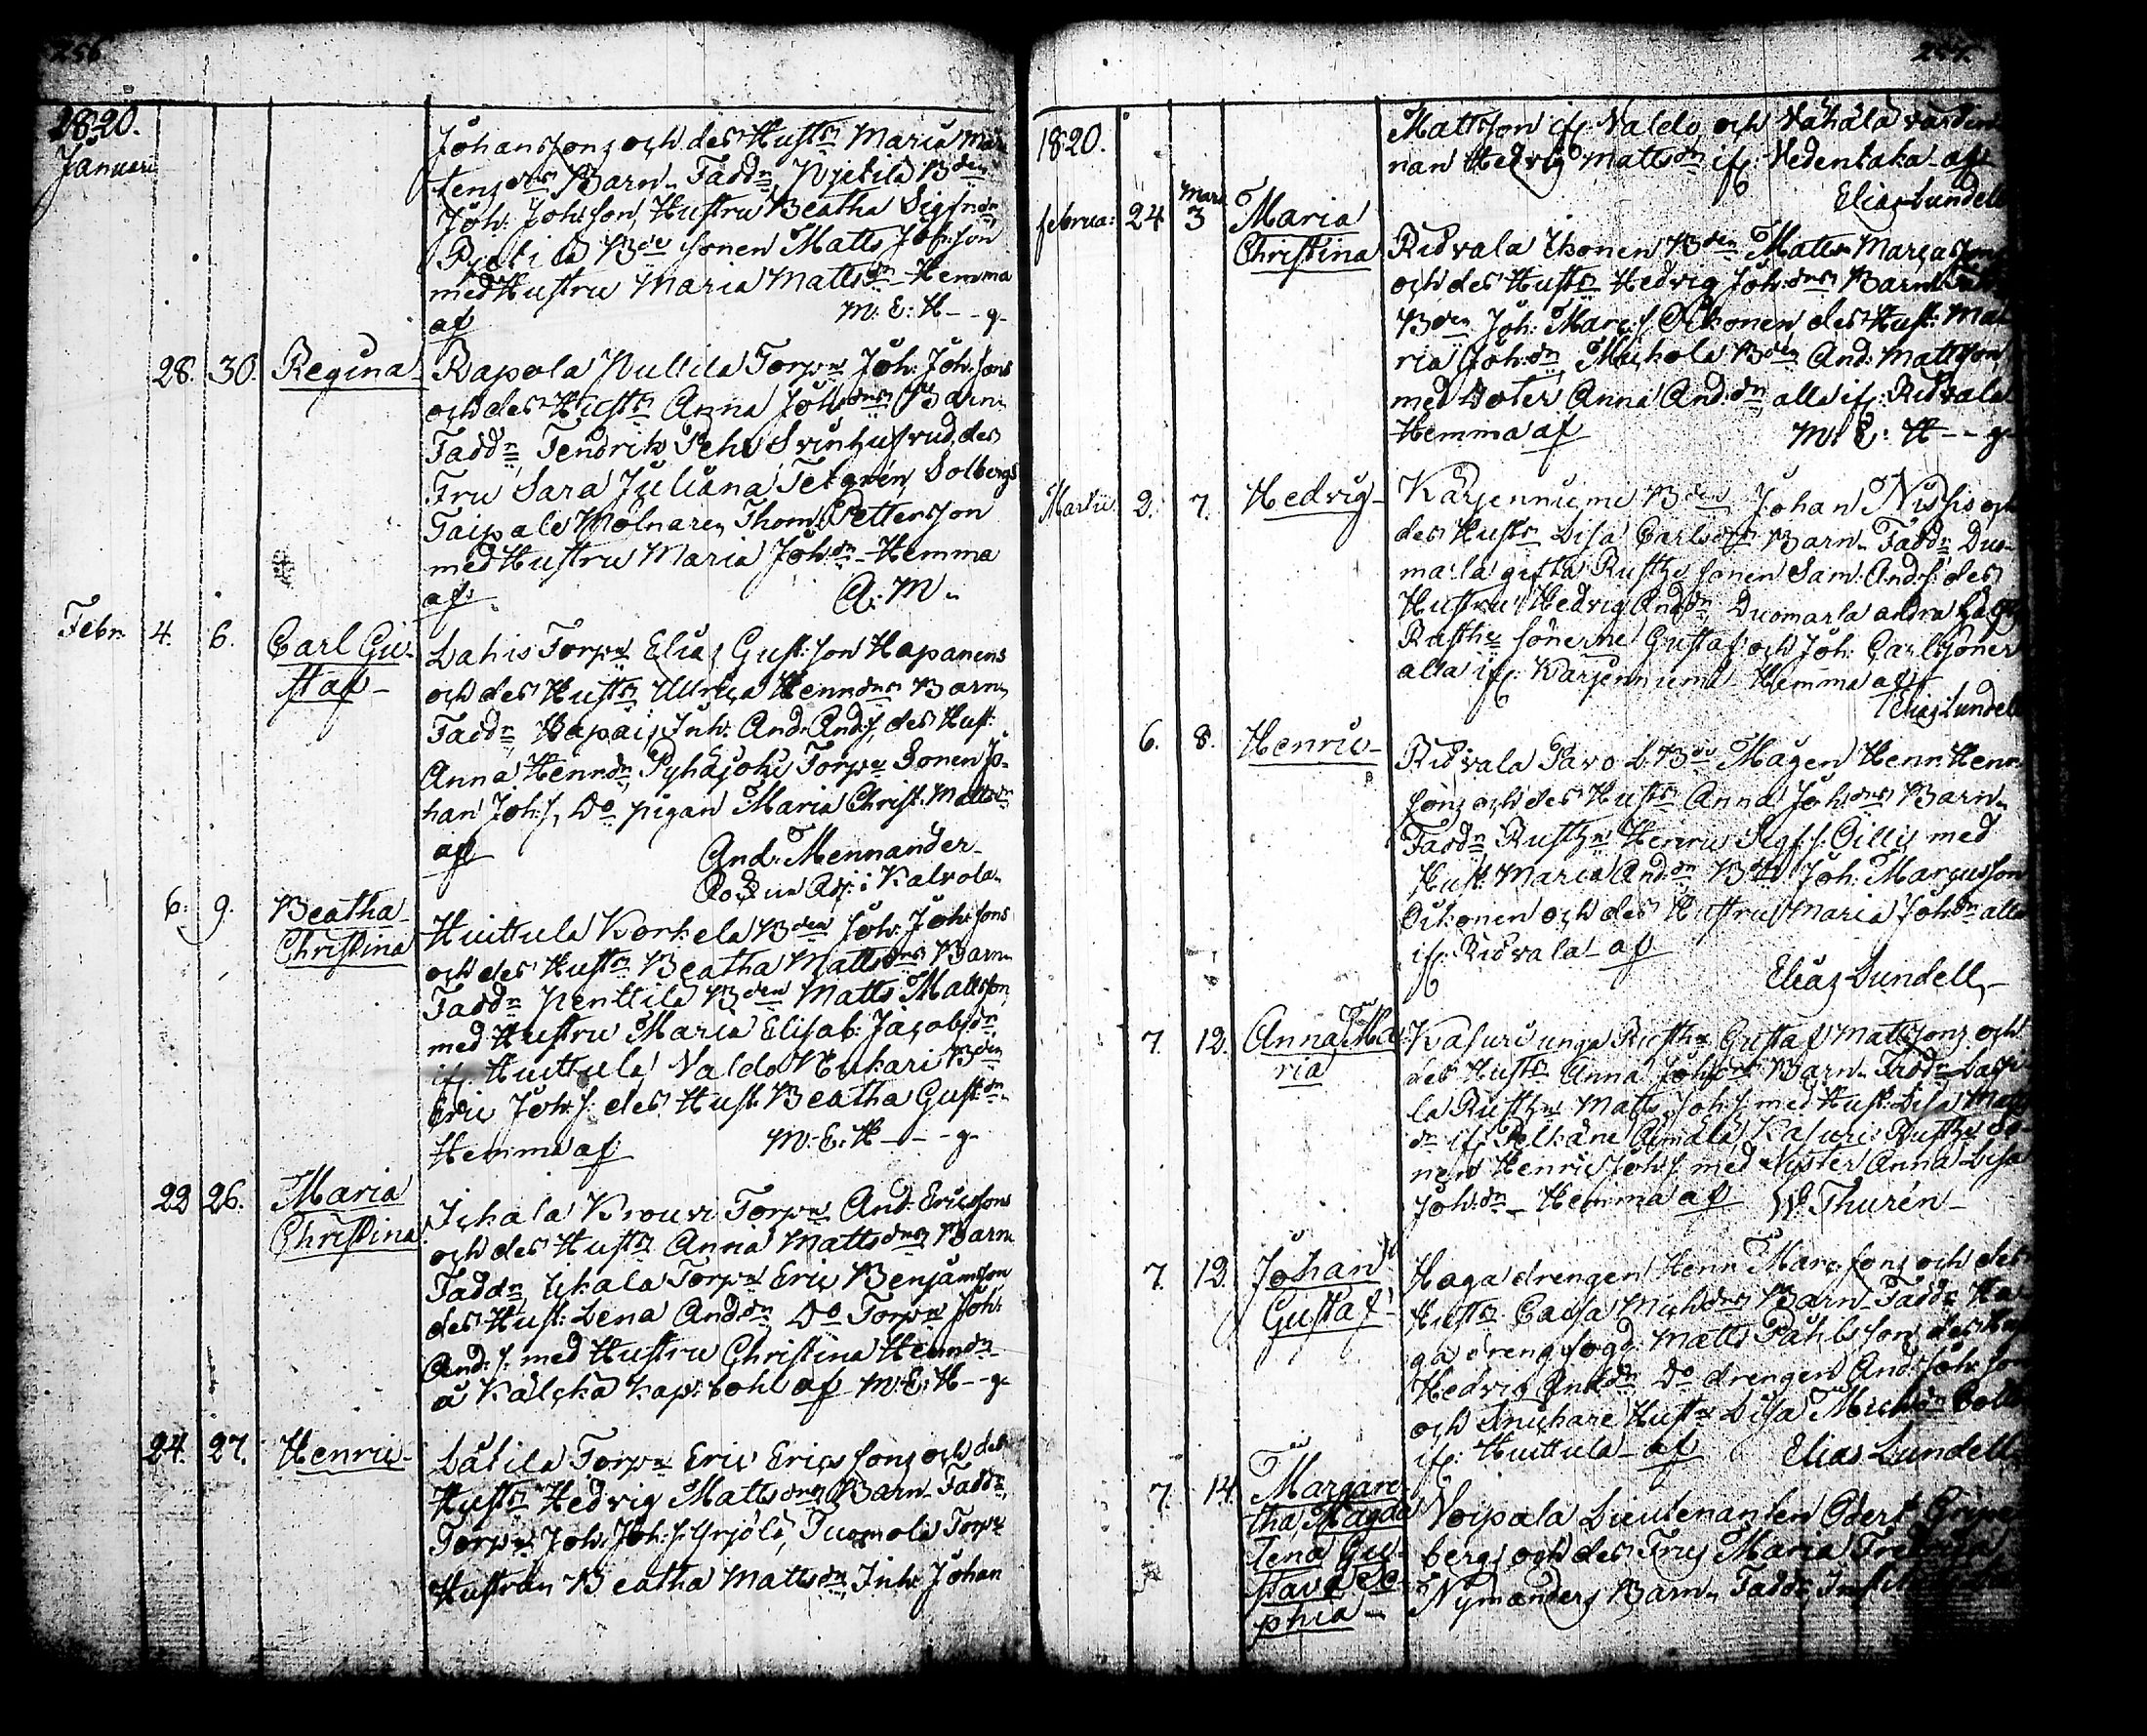 256
1820.
Januari
Johanssons och des Hustr Maria Mår-
tensdrs Barn. Faddr Pjetilä Bden
Joh: Johsson, Hustru Beatha Sigfrdr
Bde Sonen Matts Johsson
med Hustru Maria Mattsdr - Hemma
af M: E: H- -g-
28. 30. Regina Rapola Pullila Torpn Joh: Johssons
och des Hustr Anna Johdrs Barn.
Faddr Fendrik Pehr Svinhufvud, des
Fru Sara Juliana Tetgrén, Solbergs
Taipale Mölnaren Thom: Pettersson
med Hustru Maria Johdr - Hemma
af. A: M.
Febr. 4. 6. Carl Gu- Lahis Torpn Elias Gust:son Hapanens
staf - och des Hustr Ulrica Henrdrs Barn,
Faddr Hapais Inh: And: And:s, des Hust:
Anna Henrdr, Pyhäjoki Torpe Sonen Jo-
han Joh:s, Do pigan Maria Christ: Mattsdr
af And: Mennander
Adj: i Kalvola
6. 9. Beatha Huittula Korkela Bden Joh: Johssons
Christina och des Hustr Beatha Mattsdrs Barn
Faddr Penttilä Bden Matts Mattsson,
med Hustru Maria Elisab: Jacobsdr
if. Huittula, Valdo Uukari Bden
Eric Joh:s: des Hust: Beatha Gustdr.
Hemma af. M: E: H - - -g-
23 26. Maria Ickala Krouvi Torpn And: Ericssons
Christina och des Hustr Anna Mattsdrs Barn
Faddr Ickala Torpn Eric Benjamsson
des Hust: Lena Anddr Do Torpn Joh:
And:s: med Hustru Christina Henrdr
å Kälckä Kap: bohl af M: E: H- -g-
24. 27. Henric - Låtila Torpn Eric Erics sons och des
Hustr Hedvig Mattsdrs Barn - Faddr,
Torpn Joh: Joh:s: Yrjölä, Tuomola Torpe
Hustrun Beatha Mattsdr Inh: Johan
1820.
Mattsson if: Valdo och Vähälä värdin-
nan Hedvig Mattsdr if: Vedentaka - af
Elias Lundell
Februa: 24 Mars 3 Maria Ridvala Ikonen Bden Matts Marcussons
Christina och des Hustr Hedvig Johdrs Barn.
Bden Joh: Marc:s: Oikonen des Hust: Ma-
ria Johdr Mickola Bden And: Mattsson,
med Doter Anna Anddr alla if: Ridvala
Hemma af M: E: H- -g-
Martii 2. 7. Hedvig - Kärjenniemi Bden Johan Nissis och
des Hustr Lisa Carlsdrs Barn - Faddr Duo-
marla gifta Rusth: sonen Sam: And:s: des
Hustru Hedvig Anddr Duomarla andra
Rusthe sönerne Gustaf och Joh: Carlssöner
alla if: Kärjenniemi - Hemma af
Elias Lundell
6. 8. Henric - Ridvala Pavo L. Bde Mågen Henr: Henr
sons och des Hustr Anna Johdrs Barn.
Faddr Rusthn Henric Sigf:s: Ollis med
Hust: Maria Anddr Bden Joh: Marcusson
Oikonen och des Hustru Maria Johdr alla
if: Ridvala - af
Elias Lundell -
7. 12. Anna Ma- Kasuri unga Rusthn Gustaf Mattssons och
ria des Hustr Anna Johdrs Barn - Faddr
la Rusthn Matts Joh:s: med Hust: Lisa Matts
dr if: Pelkäne Aimälä, Kasuri Rusthn so-
nen Henric Joh:s: med Syster Anna Lisa
Johdr - Hemma af W: Thurén -
7. 12. Johan Haga drengen Henr: Marc:sons och des
Gustaf - Hustr Caisa Michdrs Barn - Faddr Ha-
ga drengfogd: Matts Påhlsson, des Hust
Hedvig Anddr Do drengen And: Johsson
och Snickare Hustr Lisa Michdr
if: Huittula - af Elias Lundell
7. 14. Margare- Voipala Lieutenanten Odert Gripen-
tha Magda- bergs och des Frus Maria Fredrica
lena Gu- Nymanders Barn - Faddr
stava So-
phia -